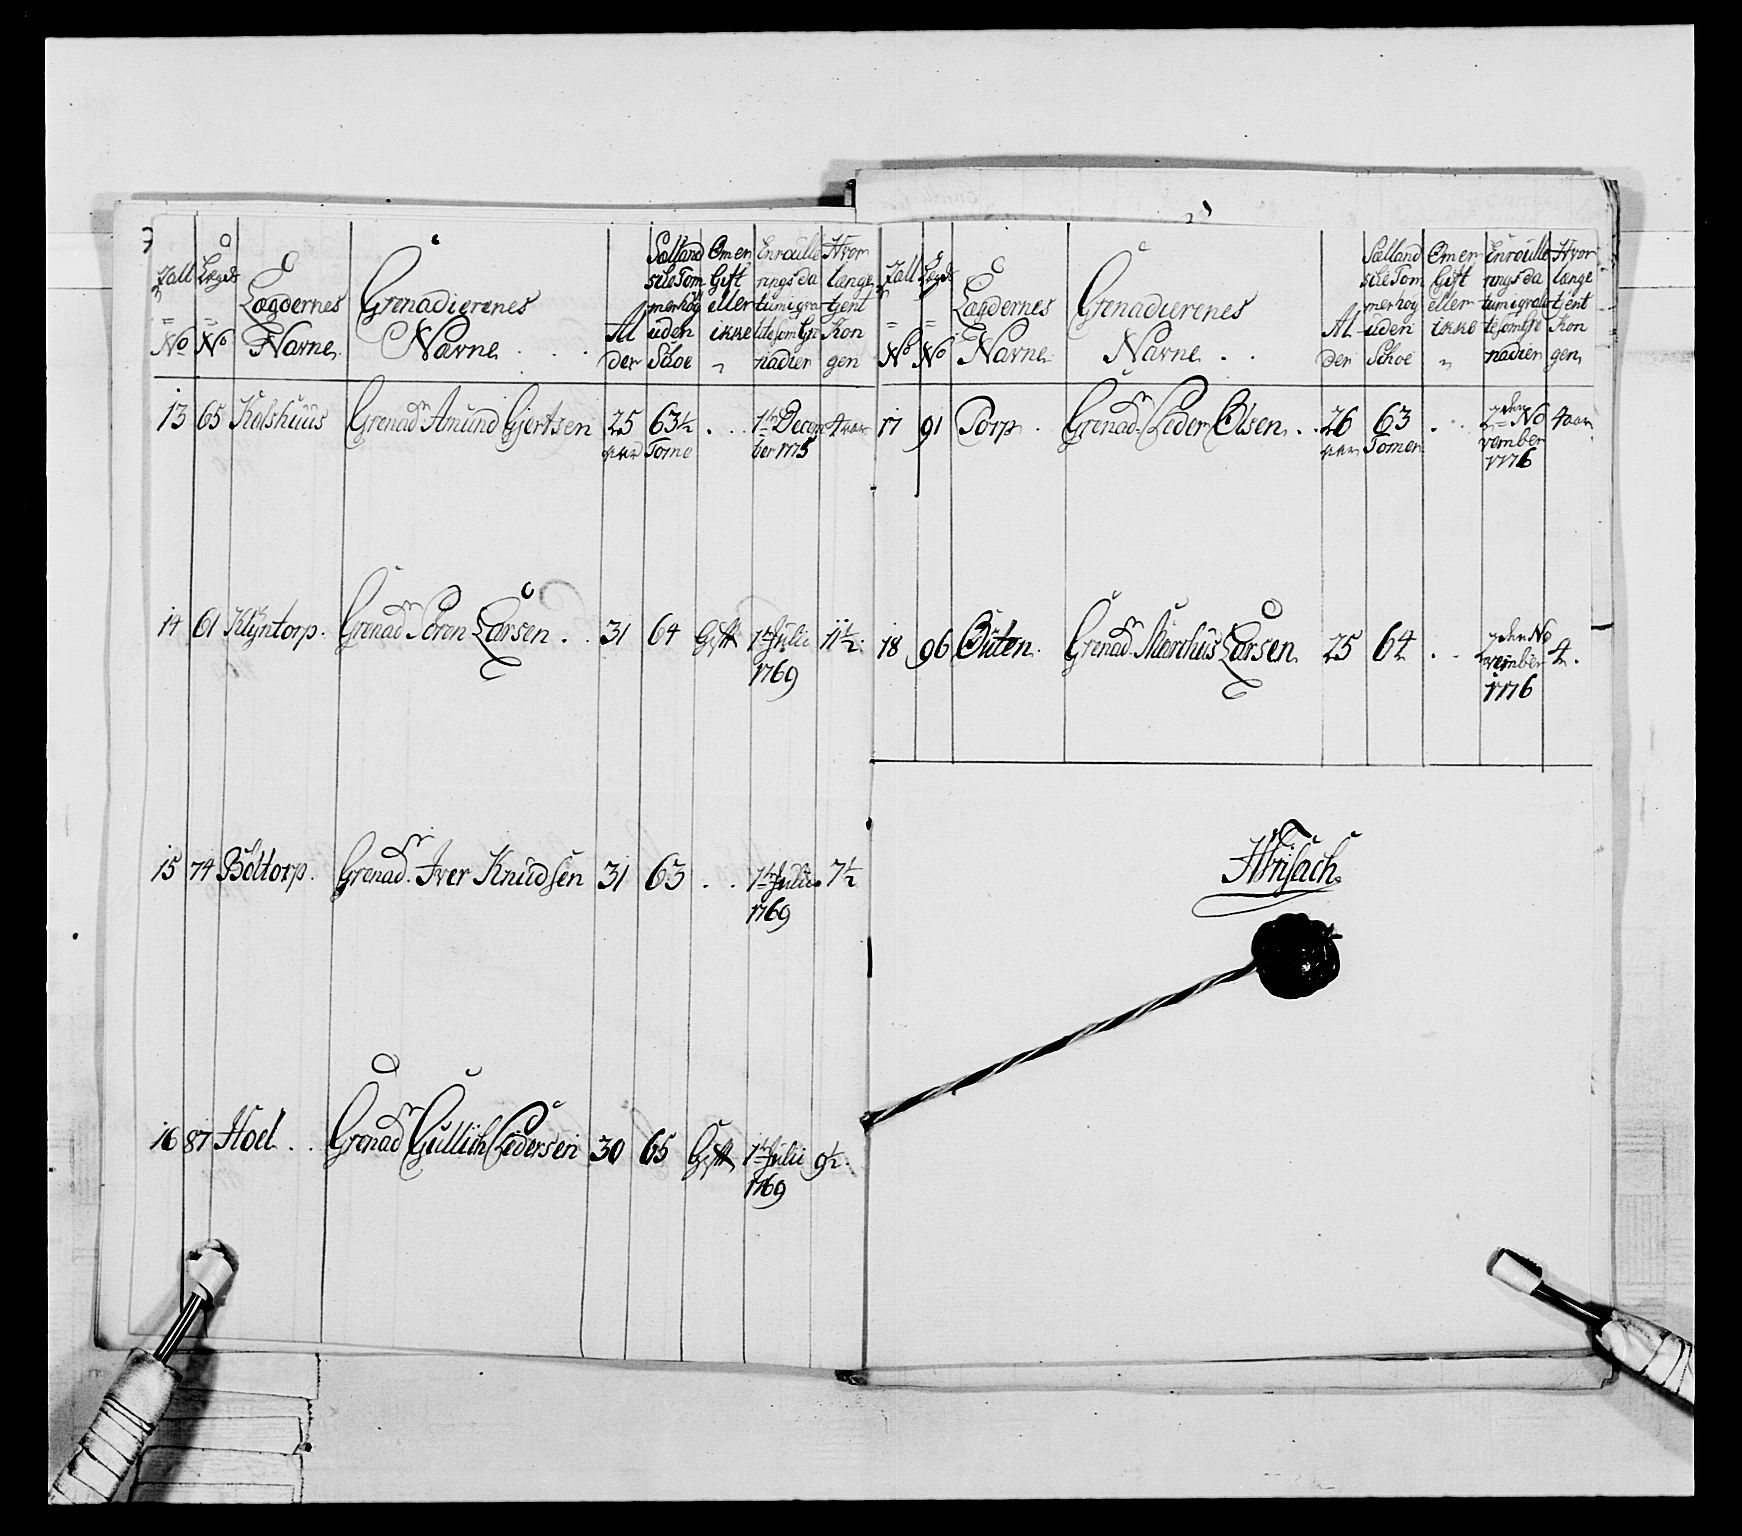 Tall No
Lægds No
Lægdernes Navne.
Grenadierenes Navne . . .
Alder
Sælland sile Tommer høy uden Skoe
Om er Gift eller ikke
Enroulle rings da tum igra te som Gre nadier
Hvor længe tient Kongen
13 65 Kolshuus Grenadr Amund Gjertsen 25 aar 63½ Tome . . 1te Decem ber 1775 4 aar
14 61 Klÿntorp. Grenadr Soren Larsen . . 31 64 Gift 1te Julii 1769 11½.
15 74 Böltorp. Grenadr. Iver Knudsen 31 63 . . 1te Julii 1769 7½
16 87 Hoel . . Grenadr Gullich Pedersen 30 65 Gift 1te Julii 1769 9½.
Tall No
Lægds No
Lægdernes Navne
Grenadierenes Navne . .
Alder
Sælland sile Tom mer høy uden Schoe
Om er Gift eller ikke
Enroulle rings da tum igra te som Gre nadier
Hvor længe tient Kon gen
17 91 Torp . Grenadr. Peder Olsen . . 26 aar 63 Tomer . . 2den No vember 1776 4 aar
18 96 Büten. Grenadr. Marchus Larsen 25 64 . . 2den No vember 1776 4.